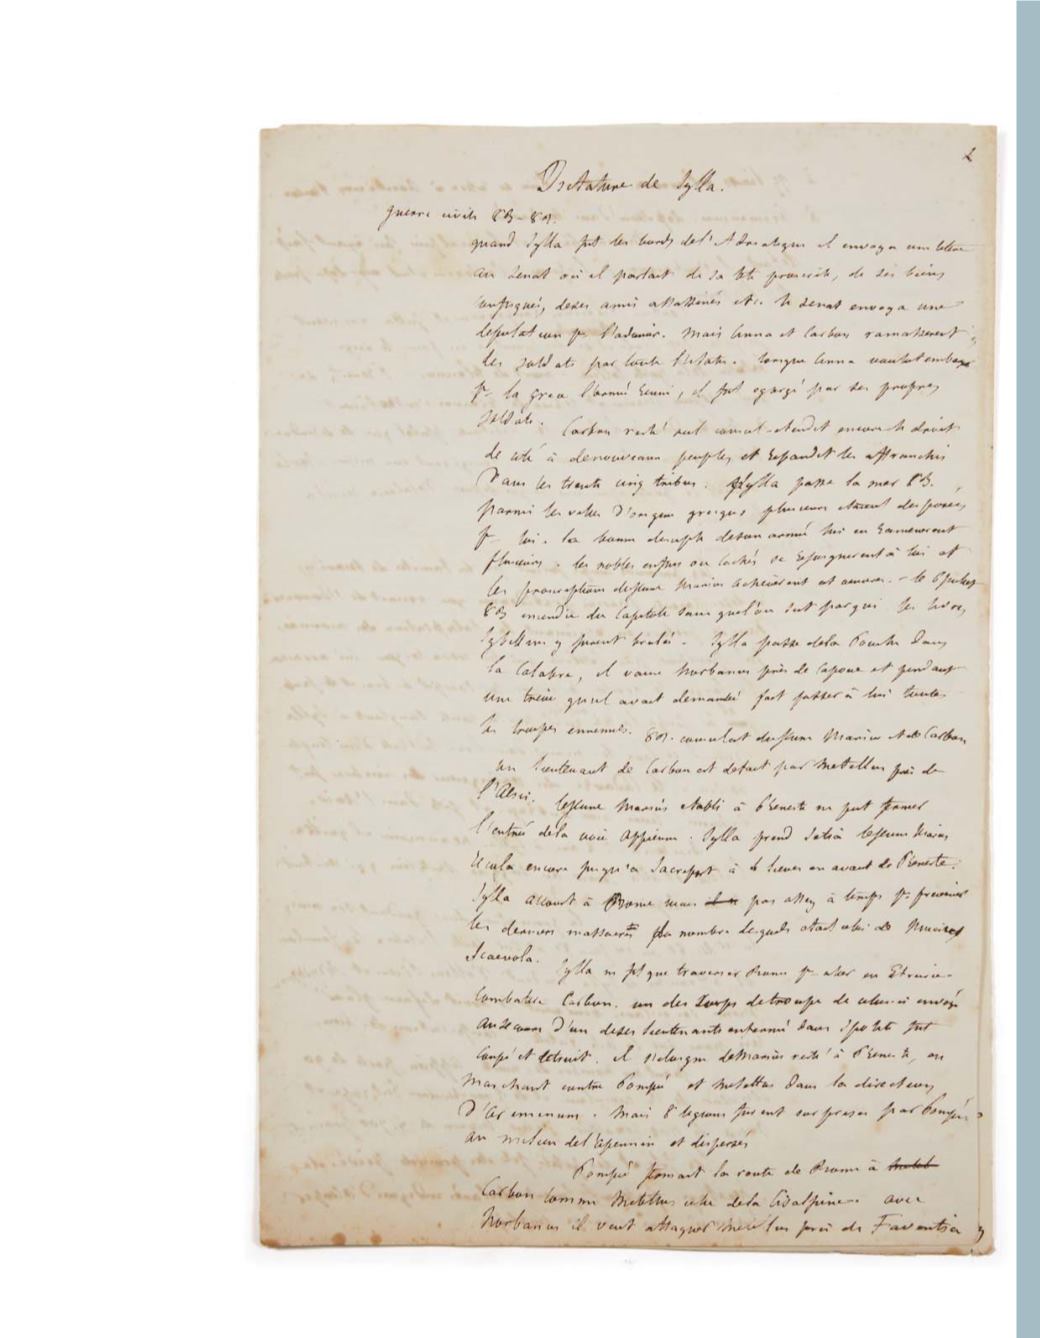 2
Dictature de Sylla.
guerre civile 83-82.
quand Sylla fut les bords de l'Adriatique il envoya une lettre
au senat où il parlait de sa tête proscrite, de ses biens
confisqués, de ses amis assassinés etc. le senat envoya une
deputation pr l'adoucir. Mais Cinna et Carbon ramassèrent
des soldats par toute l'Italie. lorsque Cinna voulut embarquer
pr la Grèce l'armée réunie, il fut egorgé par ses propres
soldats. Carbon resté seul consul étendit encore le droit
de cité à de nouveaux peuples et repandit les affranchis
Dans les trente cinq tribus. Sylla passe la mer 83.
parmi les villes d'origine grecque plusieurs étaient disposées
pr lui. la bonne discipline de son armée lui en ramenèrent
plusieurs. les nobles enfuis ou cachés se rejoignirent à lui et
les proscriptions du jeune Marius achevèrent cet oeuvre. - le 6 juillet
83 incendie du Capitole sans que l'on sut par qui les livres
sybillins y furent brulés. Sylla passe de la Pouille dans
la Calabre, il vainc Norbanus près de Capoue et pendant
une trève qu'il avait demandée fait passer à lui toutes
les troupes ennemies. 82. consulat du jeune Marius et de Carbon
un lieutenant de Carbon est defait par Metellus près de
l'Aesis. le jeune Marius établi à Preneste ne put fermer
l'entrée de la voie Appienne. Sylla prend Setia le jeune Marius
recula encore jusqu'à Sacriport à 4 lieues en avant de Preneste.
Sylla accourt à Rome mais pas assez à temps pr prevenir
les derniers massacres du nombre desquels était celui de Mucius
Scaevola. Sylla ne fit que traverser Rome pr aller en Etrurie
Combattre Carbon. un des corps de troupe de celui-ci envoyé
au secours d'un de ses lieutenants enfermé dans Spolete fut
coupé et detruit. il s'eloigne de Marius resté à Preneste, en
marchant contre Pompée et Metellus dans la direction
d'Ariminum. Mais 8 legions furent surprises par Pompée
au milieu de l'Apennin et dispersés
Pompée fermait la route de Rome à
Carbon comme Metellus celle de la Cisalpine. avec
Norbanus il veut attaquer Metellus près de Faventia